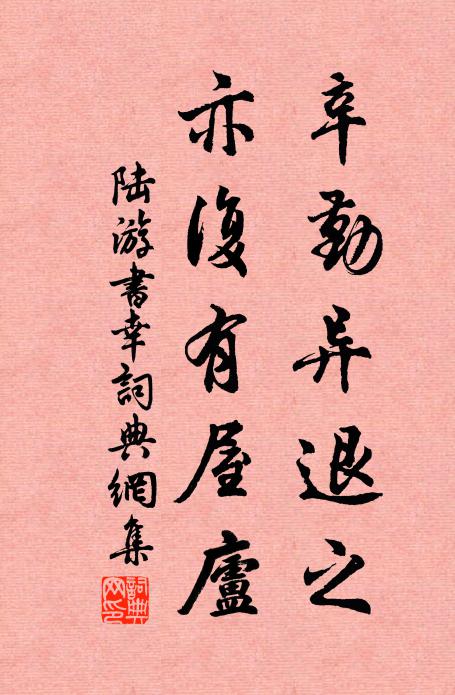 辛勤异退之
亦復有屋廬
陆游書幸詞典網集
詞典網印